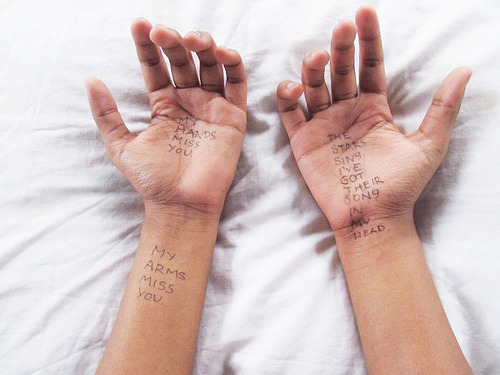 MY
HANDS
MISS
YOU.
MY
ARMS
MISS
YOU.
THE
STARS
SING
I'VE
GOT
THEIR
SONG
IN
MY
HEAD